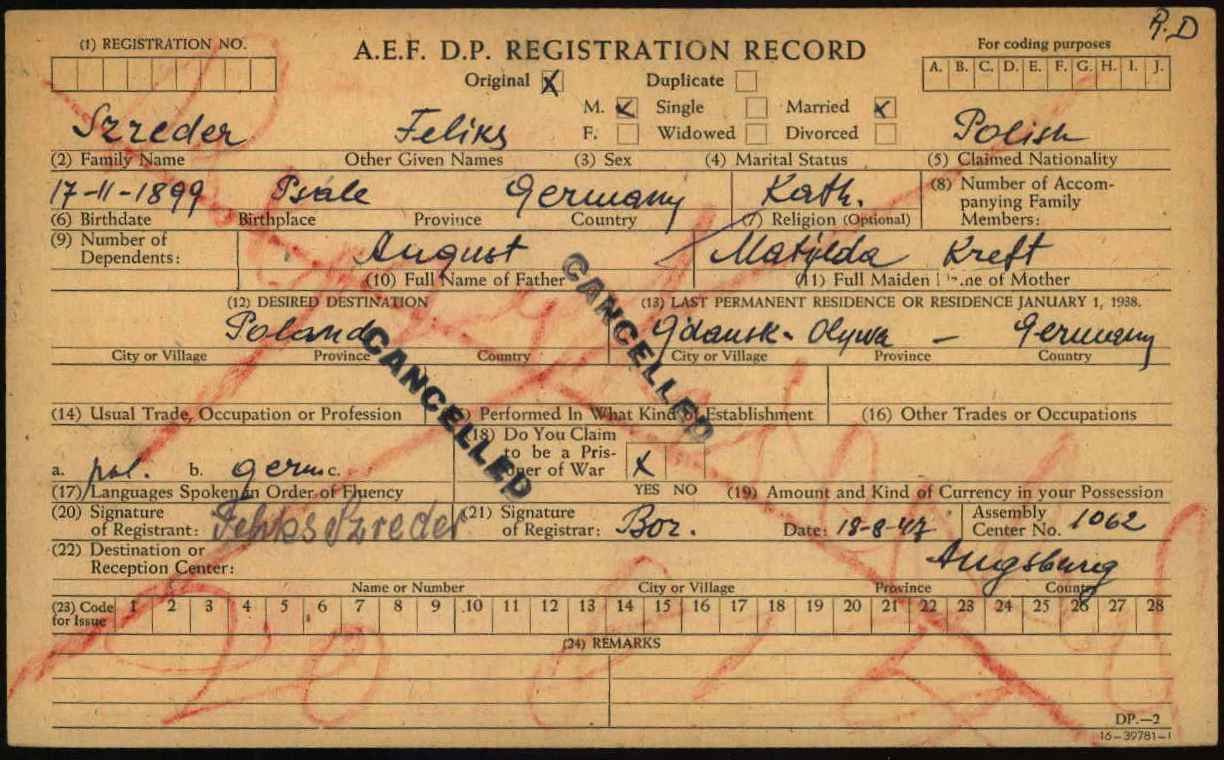 R.D
(1) REGISTRATION NO.
A.E.F. D.P. REGISTRATION RECORD
For coding purposes
Original X Duplicate
A. B. C. D. E. F. G. H. I. J.
M. Single Married
F. Widowed Divorced
Szreder Feliks Polish
(2) Family Name Other Given Names (3) Sex (4) Marital Status (5) Claimed Nationality
17-11-1899 Psale Germany Kath.
(8) Number of Accompanying Family Members:
(6) Birthdate Birthplace Province Country (7) Religion (Optional)
(9) Number of Dependents:
August Matylda Kreft
(10) Full Name of Father (11) Full Maiden Name of Mother
(12) DESIRED DESTINATION (13) LAST PERMANENT RESIDENCE OR RESIDENCE JANUARY 1, 1938.
Poland Gdansk - Olywa - Germany
City or Village Province Country City or Village Province Country
CANCELLED
CANCELLED
(14) Usual Trade, Occupation or Profession (15) Performed In What Kind of Establishment (16) Other Trades or Occupations
a. pol. b. germ c.
(18) Do You Claim to be a Prisoner of War
X
YES NO
(17) Languages Spoken in Order of Fluency (19) Amount and Kind of Currency in your Possession
(20) Signature of Registrant: Feliks Szreder (21) Signature of Registrar: Bor. Date: 18-8-47 Assembly Center No. 1062
(22) Destination or Reception Center:
Augsburg
Name or Number City or Village Province Country
(23) Code for Issue 1 2 3 4 5 6 7 8 9 10 11 12 13 14 15 16 17 18 19 20 21 22 23 24 25 26 27 28
(24) REMARKS
DP.—2
16-39781-1